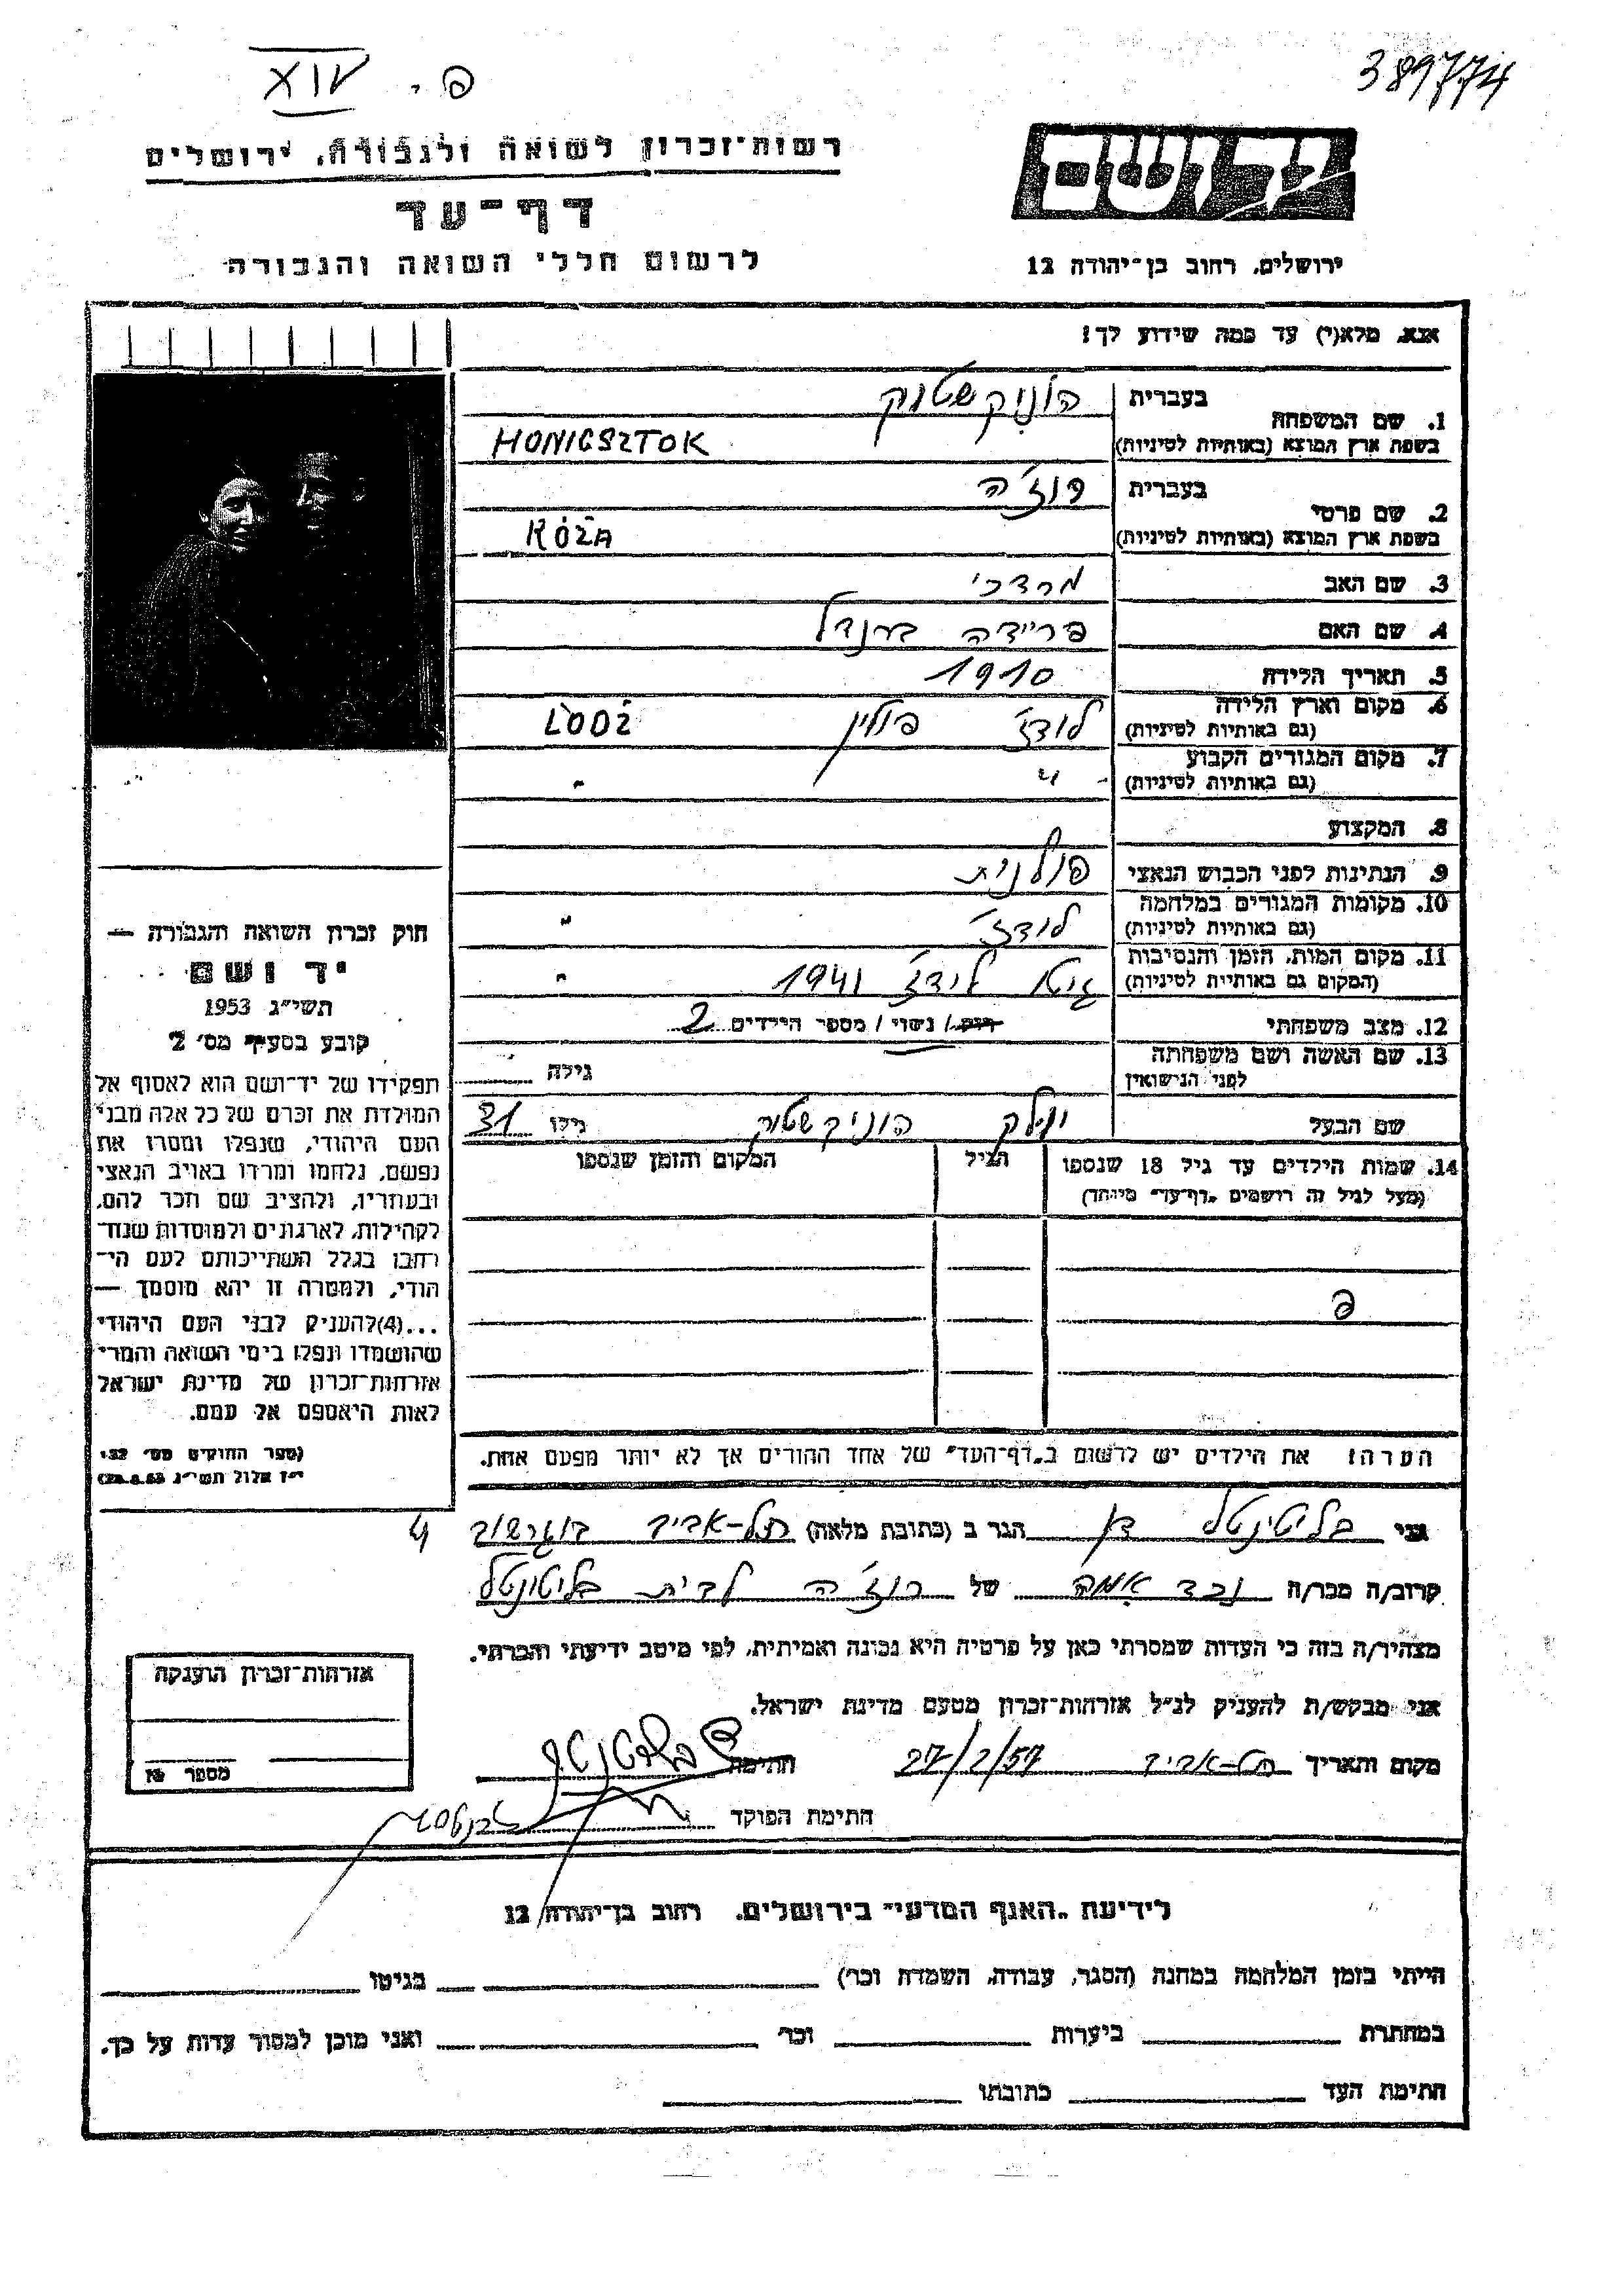 פ. XIV
389774
רשות־זכרון לשואה ולגבורה, ירושלים
דף־עד
לרשום חללי השואה והגבורה
יד ושם
ירושלים, רחוב בן־יהודה 12
אנא, מלא(י) עד כמה שידוע לך!
1. שם המשפחה בעברית הוניקשטוק
בשפת ארץ המוצא (באותיות לטיניות) HONIGSZTOK
2. שם פרטי בעברית רוז'ה
בשפת ארץ המוצא (באותיות לטיניות) RÓŻA
3. שם האב מרדכי
4. שם האם פריידה ברנדל
5. תאריך הלידה 1910
6. מקום וארץ הלידה לודז' פולין LODŹ
(גם באותיות לטיניות)
7. מקום המגורים הקבוע " "
(גם באותיות לטיניות)
8. המקצוע
9. הנתינות לפני הכבוש הנאצי פולנית
10. מקומות המגורים במלחמה לודז' "
(גם באותיות לטיניות)
11. מקום המות, הזמן והנסיבות גיטו לודז' 1941 "
(המקום גם באותיות לטיניות)
12. מצב משפחתי רוק / נשוי / מספר הילדים 2
13. שם האשה ושם משפחתה
לפני הנישואין גילה
שם הבעל הוניקשטוק גילו 31
14. שמות הילדים עד גיל 18 שנספו הגיל המקום והזמן שנספו
(מעל לגיל זה רושמים "דף־עד" מיוחד)
פ
הערה! את הילדים יש לרשום ב"דף־העד" של אחד ההורים אך לא יותר מפעם אחת.
חוק זכרון השואה והגבורה —
יד ושם
תשי"ג 1953
קובע בסעיף מס' 2
תפקידו של יד־ושם הוא לאסוף אל
המולדת את זכרם של כל אלה מבני
העם היהודי, שנפלו ומסרו את
נפשם, נלחמו ומרדו באויב הנאצי
ובעוזריו, ולהציב שם וזכר להם,
לקהילות, לארגונים ולמוסדות שנח־
רבו בגלל השתייכותם לעם הי־
הודי, ולמטרה זו יהא מוסמך —
...(4) להעניק לבני העם היהודי
שהושמדו ונפלו בימי השואה והמרי
אזרחות־זכרון של מדינת ישראל
לאות היאספם אל עמם.
(ספר החוקים מס' 132,
י"ז אלול תשי"ג 28.8.53)
אני בליטנטל דן הגר ב (כתובת מלאה) תל-אביב בוגרשוב 4
קרוב/ה מכר/ה נכד אמה של רוז'ה לבית בליטנטל
מצהיר/ה בזה כי העדות שמסרתי כאן על פרטיה היא נכונה ואמיתית, לפי מיטב ידיעתי והכרתי.
אני מבקש/ת להעניק לנ"ל אזרחות־זכרון מטעם מדינת ישראל.
מקום ותאריך תל-אביב 27/2/57 חתימה ד בליטנטל
חתימת הפוקד
אזרחות־זכרון הוענקה
מספר №
לידיעת "האגף המדעי" בירושלים, רחוב בן־יהודה 12
הייתי בזמן המלחמה במחנה (הסגר, עבודה, השמדה וכו') בגיטו
במחתרת ביערות וכו' ואני מוכן למסור עדות על כך.
חתימת העד כתובתו